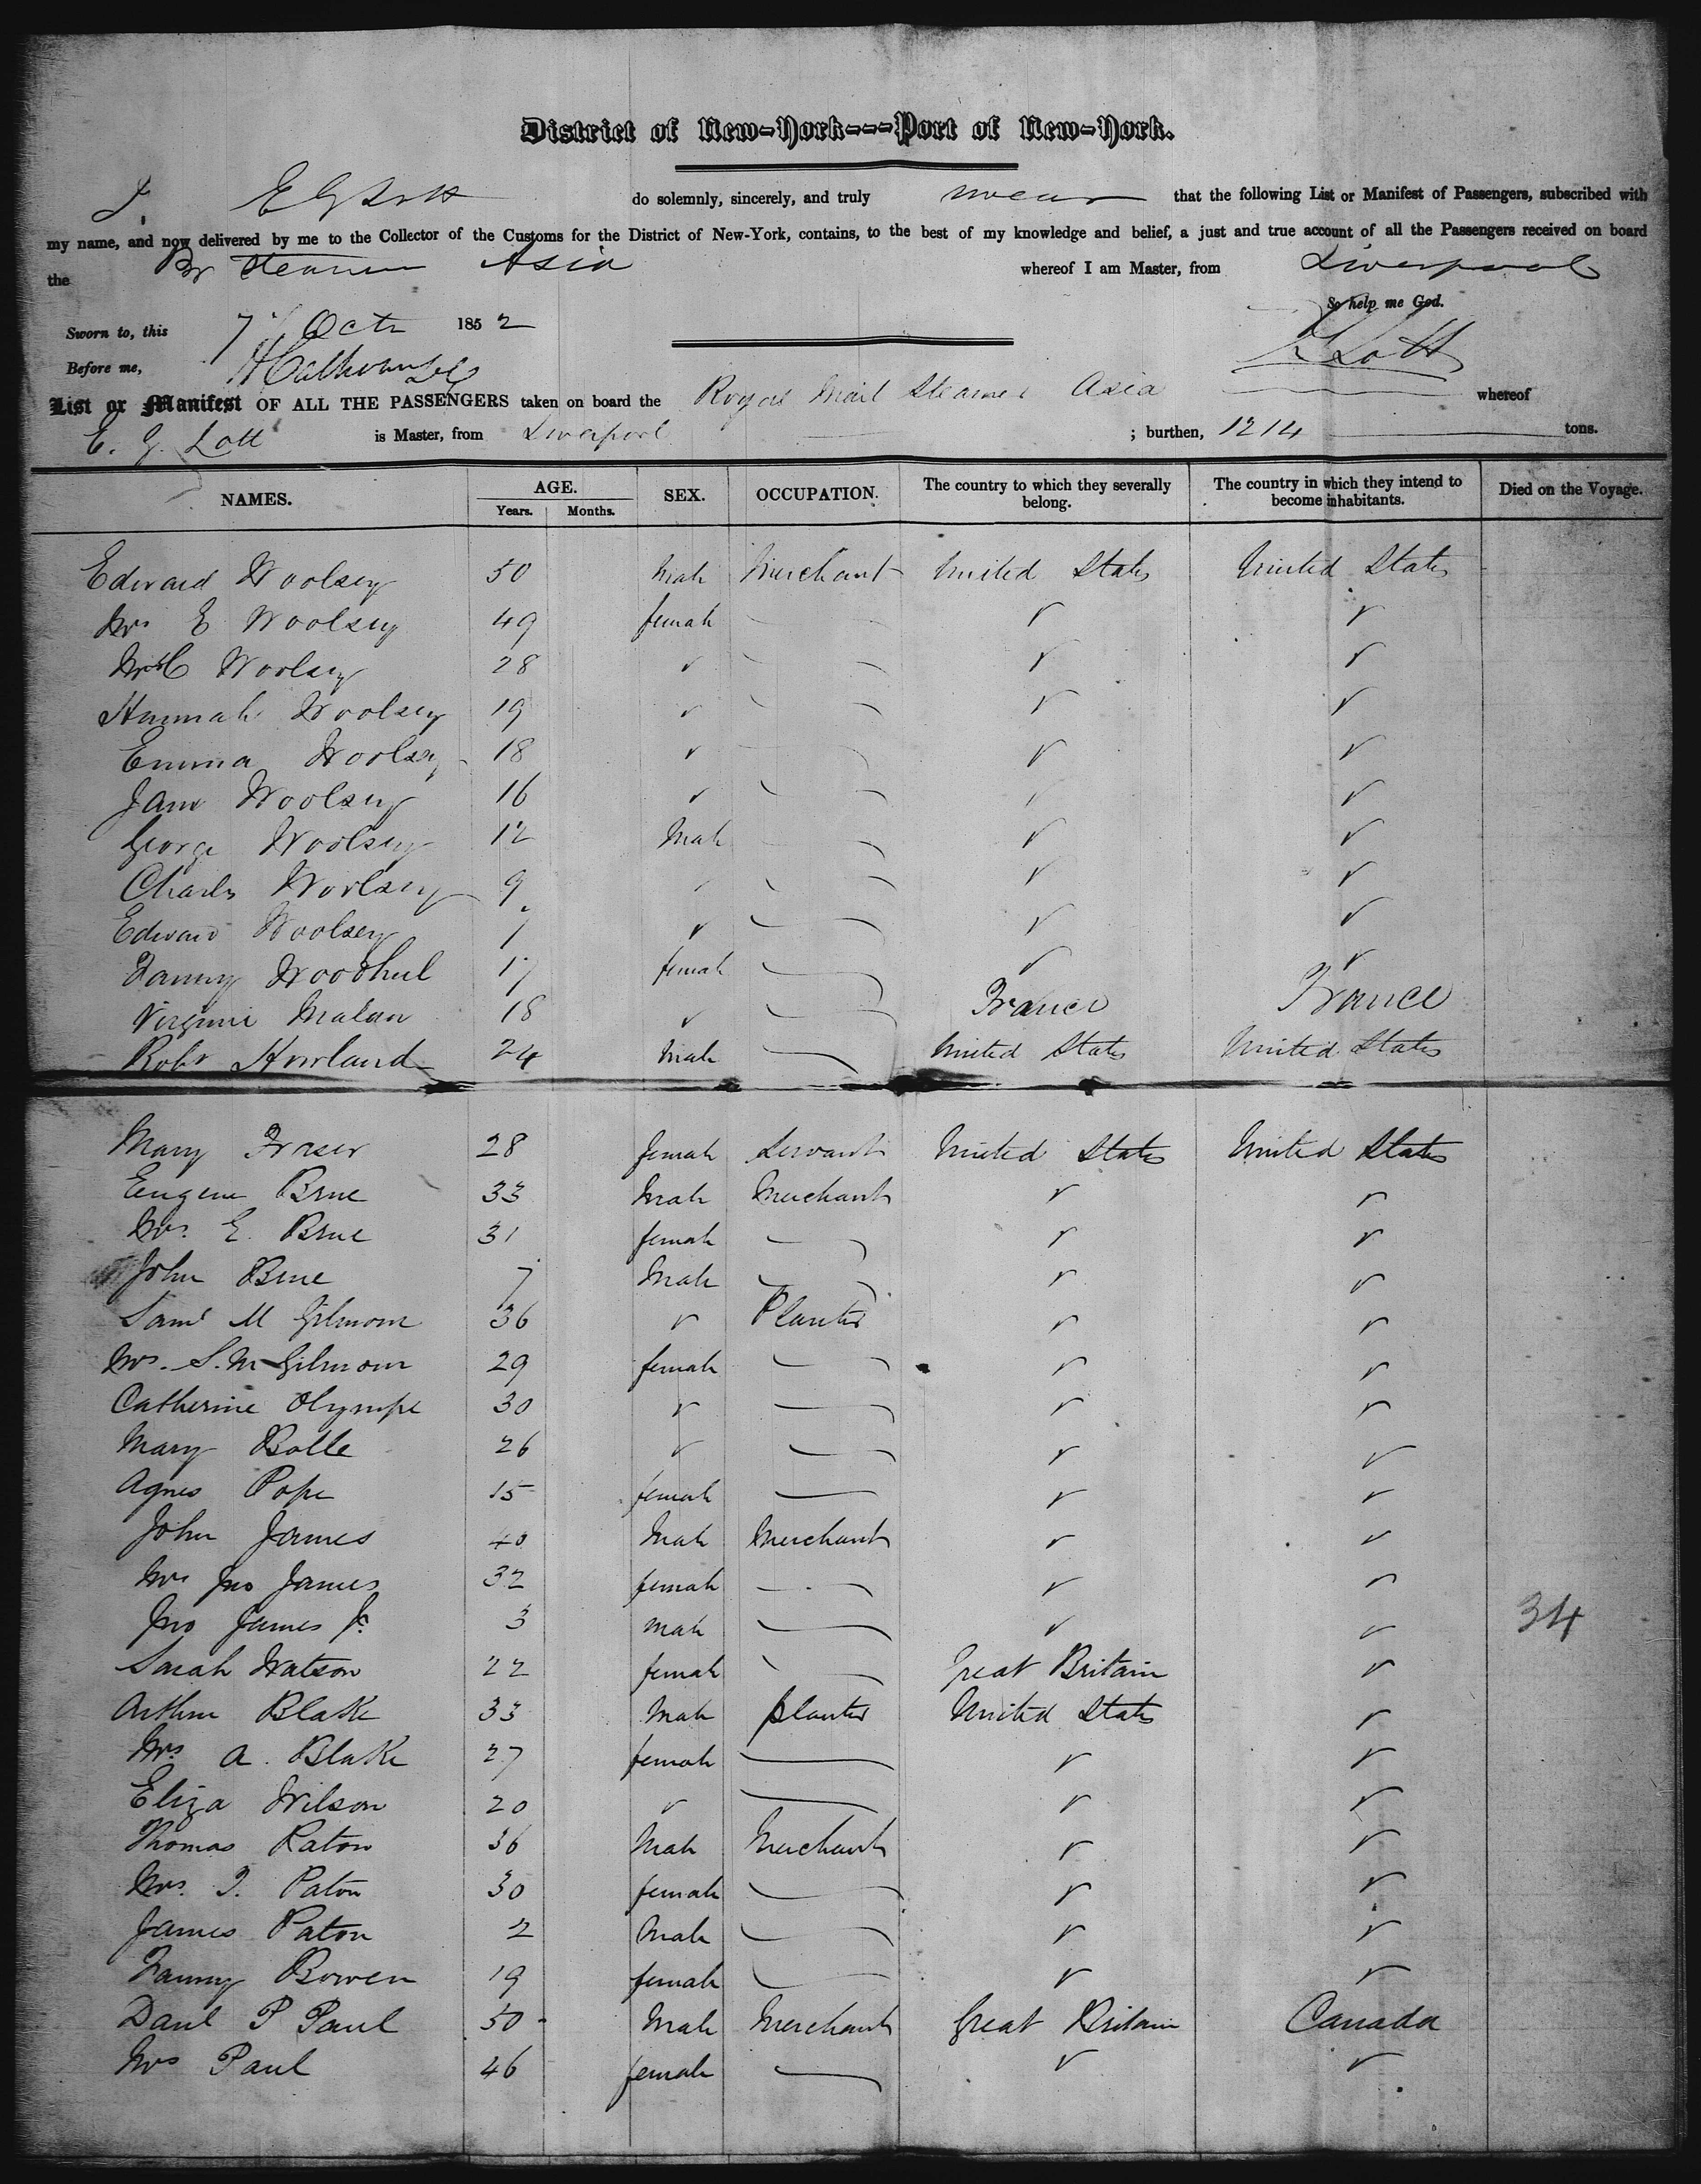 District of New-York---Port of New-York.
I, E G Lott do solemnly, sincerely, and truly swear that the following List or Manifest of Passengers, subscribed with
my name, and now delivered by me to the Collector of the Customs for the District of New-York, contains, to the best of my knowledge and belief, a just and true account of all the Passengers received on board
the Br Steamer Asia whereof I am Master, from Liverpool
So help me God.
Sworn to, this 7 Octr 1852
E G Lott
Before me,
List or Manifest OF ALL THE PASSENGERS taken on board the Royal Mail Steamer Asia whereof
E. G. Lott is Master, from Liverpool ; burthen, 1214 tons.
NAMES. AGE. SEX. OCCUPATION. The country to which they severally belong. The country in which they intend to become inhabitants. Died on the Voyage.
Years. Months.
Edward Woolsey 50 Male Merchant United States United States
Mrs E Woolsey 49 female ✓ ✓
Mrs C Woolsey 28 ✓ ✓ ✓
Hannah Woolsey 19 ✓ ✓ ✓
Emma Woolsey 18 ✓ ✓ ✓
Jane Woolsey 16 ✓ ✓ ✓
George Woolsey 12 Male ✓ ✓
Charles Woolsey 9 ✓ ✓ ✓
Edward Woolsey 7 ✓ ✓ ✓
Fanny Woodhul 17 female ✓ ✓
Virginie Malan 18 ✓ France France
Robt Howland 24 Male United States United States
Mary Fraser 28 female Servant United States United States
Eugene Brue 33 Male Merchant ✓ ✓
Mrs. E. Brue 31 female ✓ ✓
John Brue 7 Male ✓ ✓
Saml M Gilmour 36 ✓ Planter ✓ ✓
Mrs. S. M Gilmour 29 female ✓ ✓
Catherine Olympe 30 ✓ ✓ ✓
Mary Bolle 26 ✓ ✓ ✓
Agnes Pope 15 female ✓ ✓
John James 40 Male Merchant ✓ ✓
Mrs Jno James 32 female ✓ ✓
Jno James Jr 3 Male ✓ ✓ 34
Sarah Watson 22 female Great Britain ✓
Arthur Blake 33 Male planter United States ✓
Mrs A. Blake 27 female ✓ ✓
Eliza Wilson 20 ✓ ✓ ✓
Thomas Paton 36 Male Merchant ✓ ✓
Mrs. T. Paton 30 female ✓ ✓
James Paton 2 Male ✓ ✓
Fanny Bowen 19 female ✓ ✓
Danl P Paul 50 Male Merchant Great Britain Canada
Mrs Paul 46 female ✓ ✓